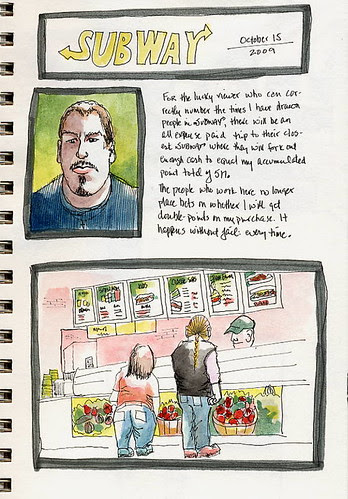 SUBWAY
October 15
2009
For the lucky viewer who can cor-
rectly number the times I have drawn
people in SUBWAY, there will be an
all expense paid trip to their clos-
est SUBWAY where they will fork out
enough cash to equal my accumulated
point total of 511.
The people who work here no longer
place bets on whether I will get
double-points on my purchase. It
happens without fail: every time.
SUBS